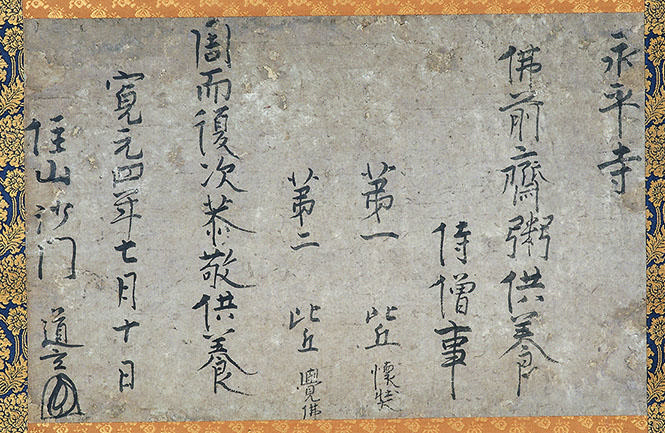 永平寺
佛前齋粥供養
侍僧事
第一 比丘 懷奘
第二 比丘 覺佛
周而復次恭敬供養
寛元四年七月十日
住山沙門 道玄